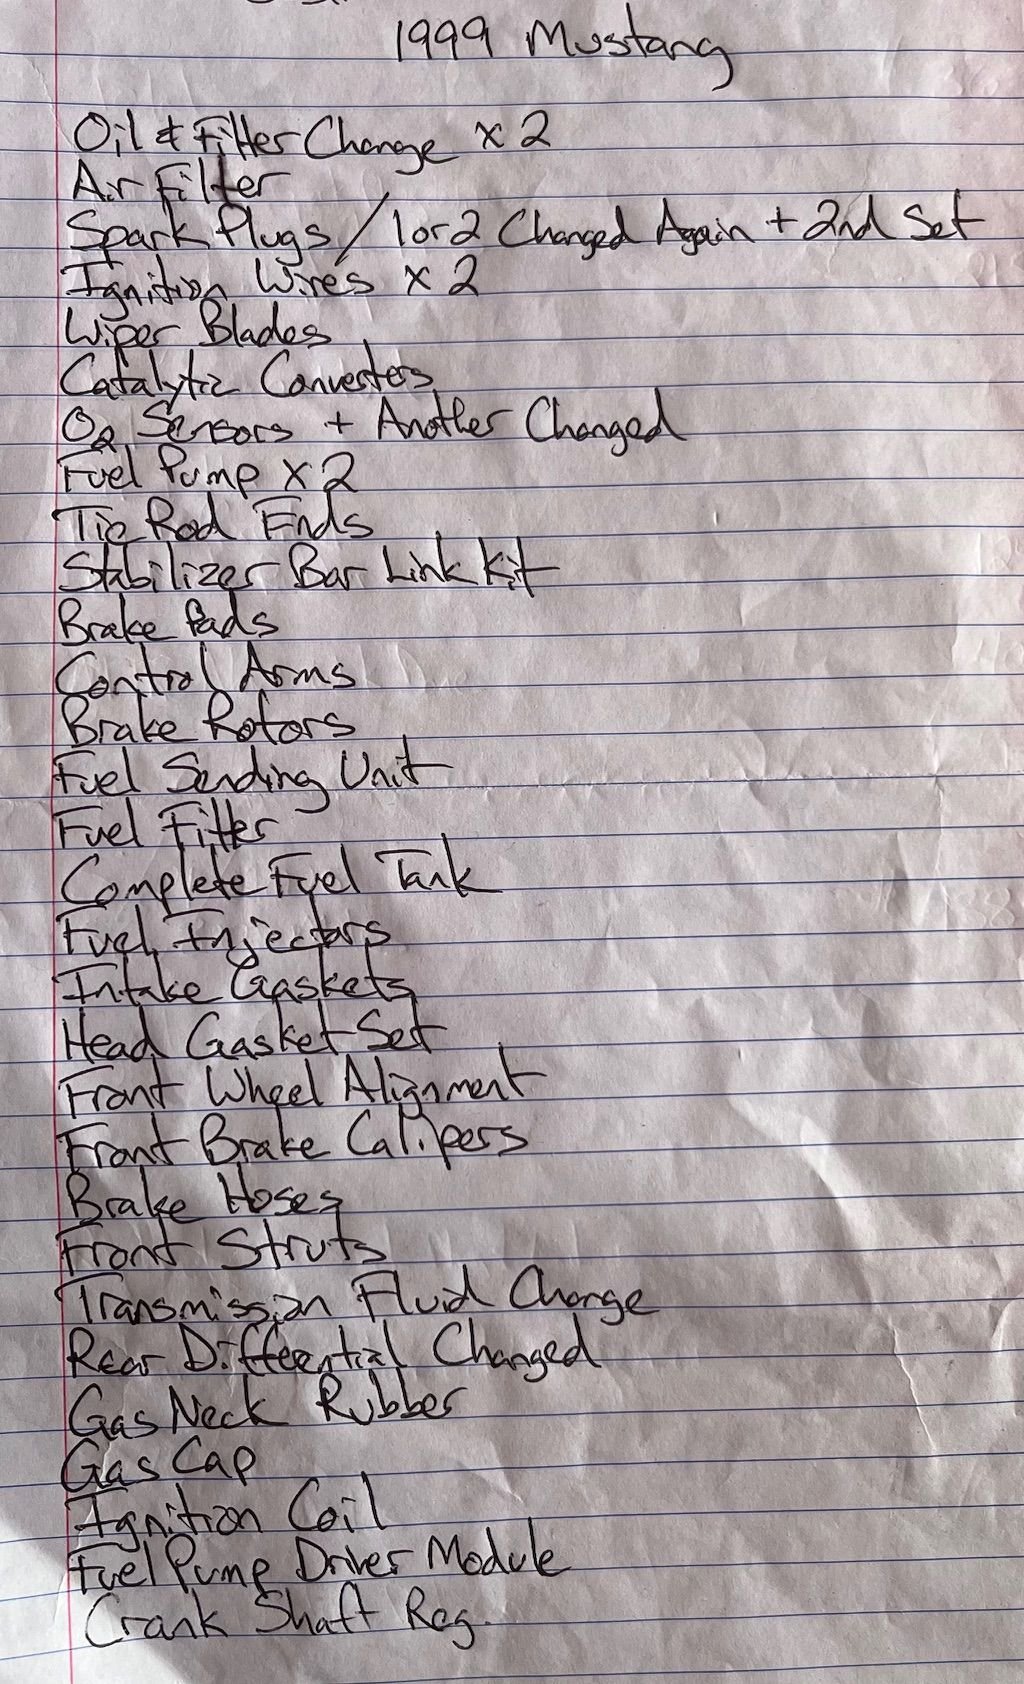 1999 Mustang
Oil & Filter Change x 2
Air Filter
Spark Plugs / 1 or 2 Changed Again + 2nd Set
Ignition Wires x 2
Wiper Blades
Catalytic Converters
O2 Sensors + Another Changed
Fuel Pump x 2
Tie Rod Ends
Stabilizer Bar Link Kit
Brake Pads
Control Arms
Brake Rotors
Fuel Sending Unit
Fuel Filter
Complete Fuel Tank
Fuel Injectors
Intake Gaskets
Head Gasket Set
Front Wheel Alignment
Front Brake Calipers
Brake Hoses
Front Struts
Transmission Fluid Change
Rear Differential Changed
Gas Neck Rubber
Gas Cap
Ignition Coil
Fuel Pump Driver Module
Crank Shaft Reg.